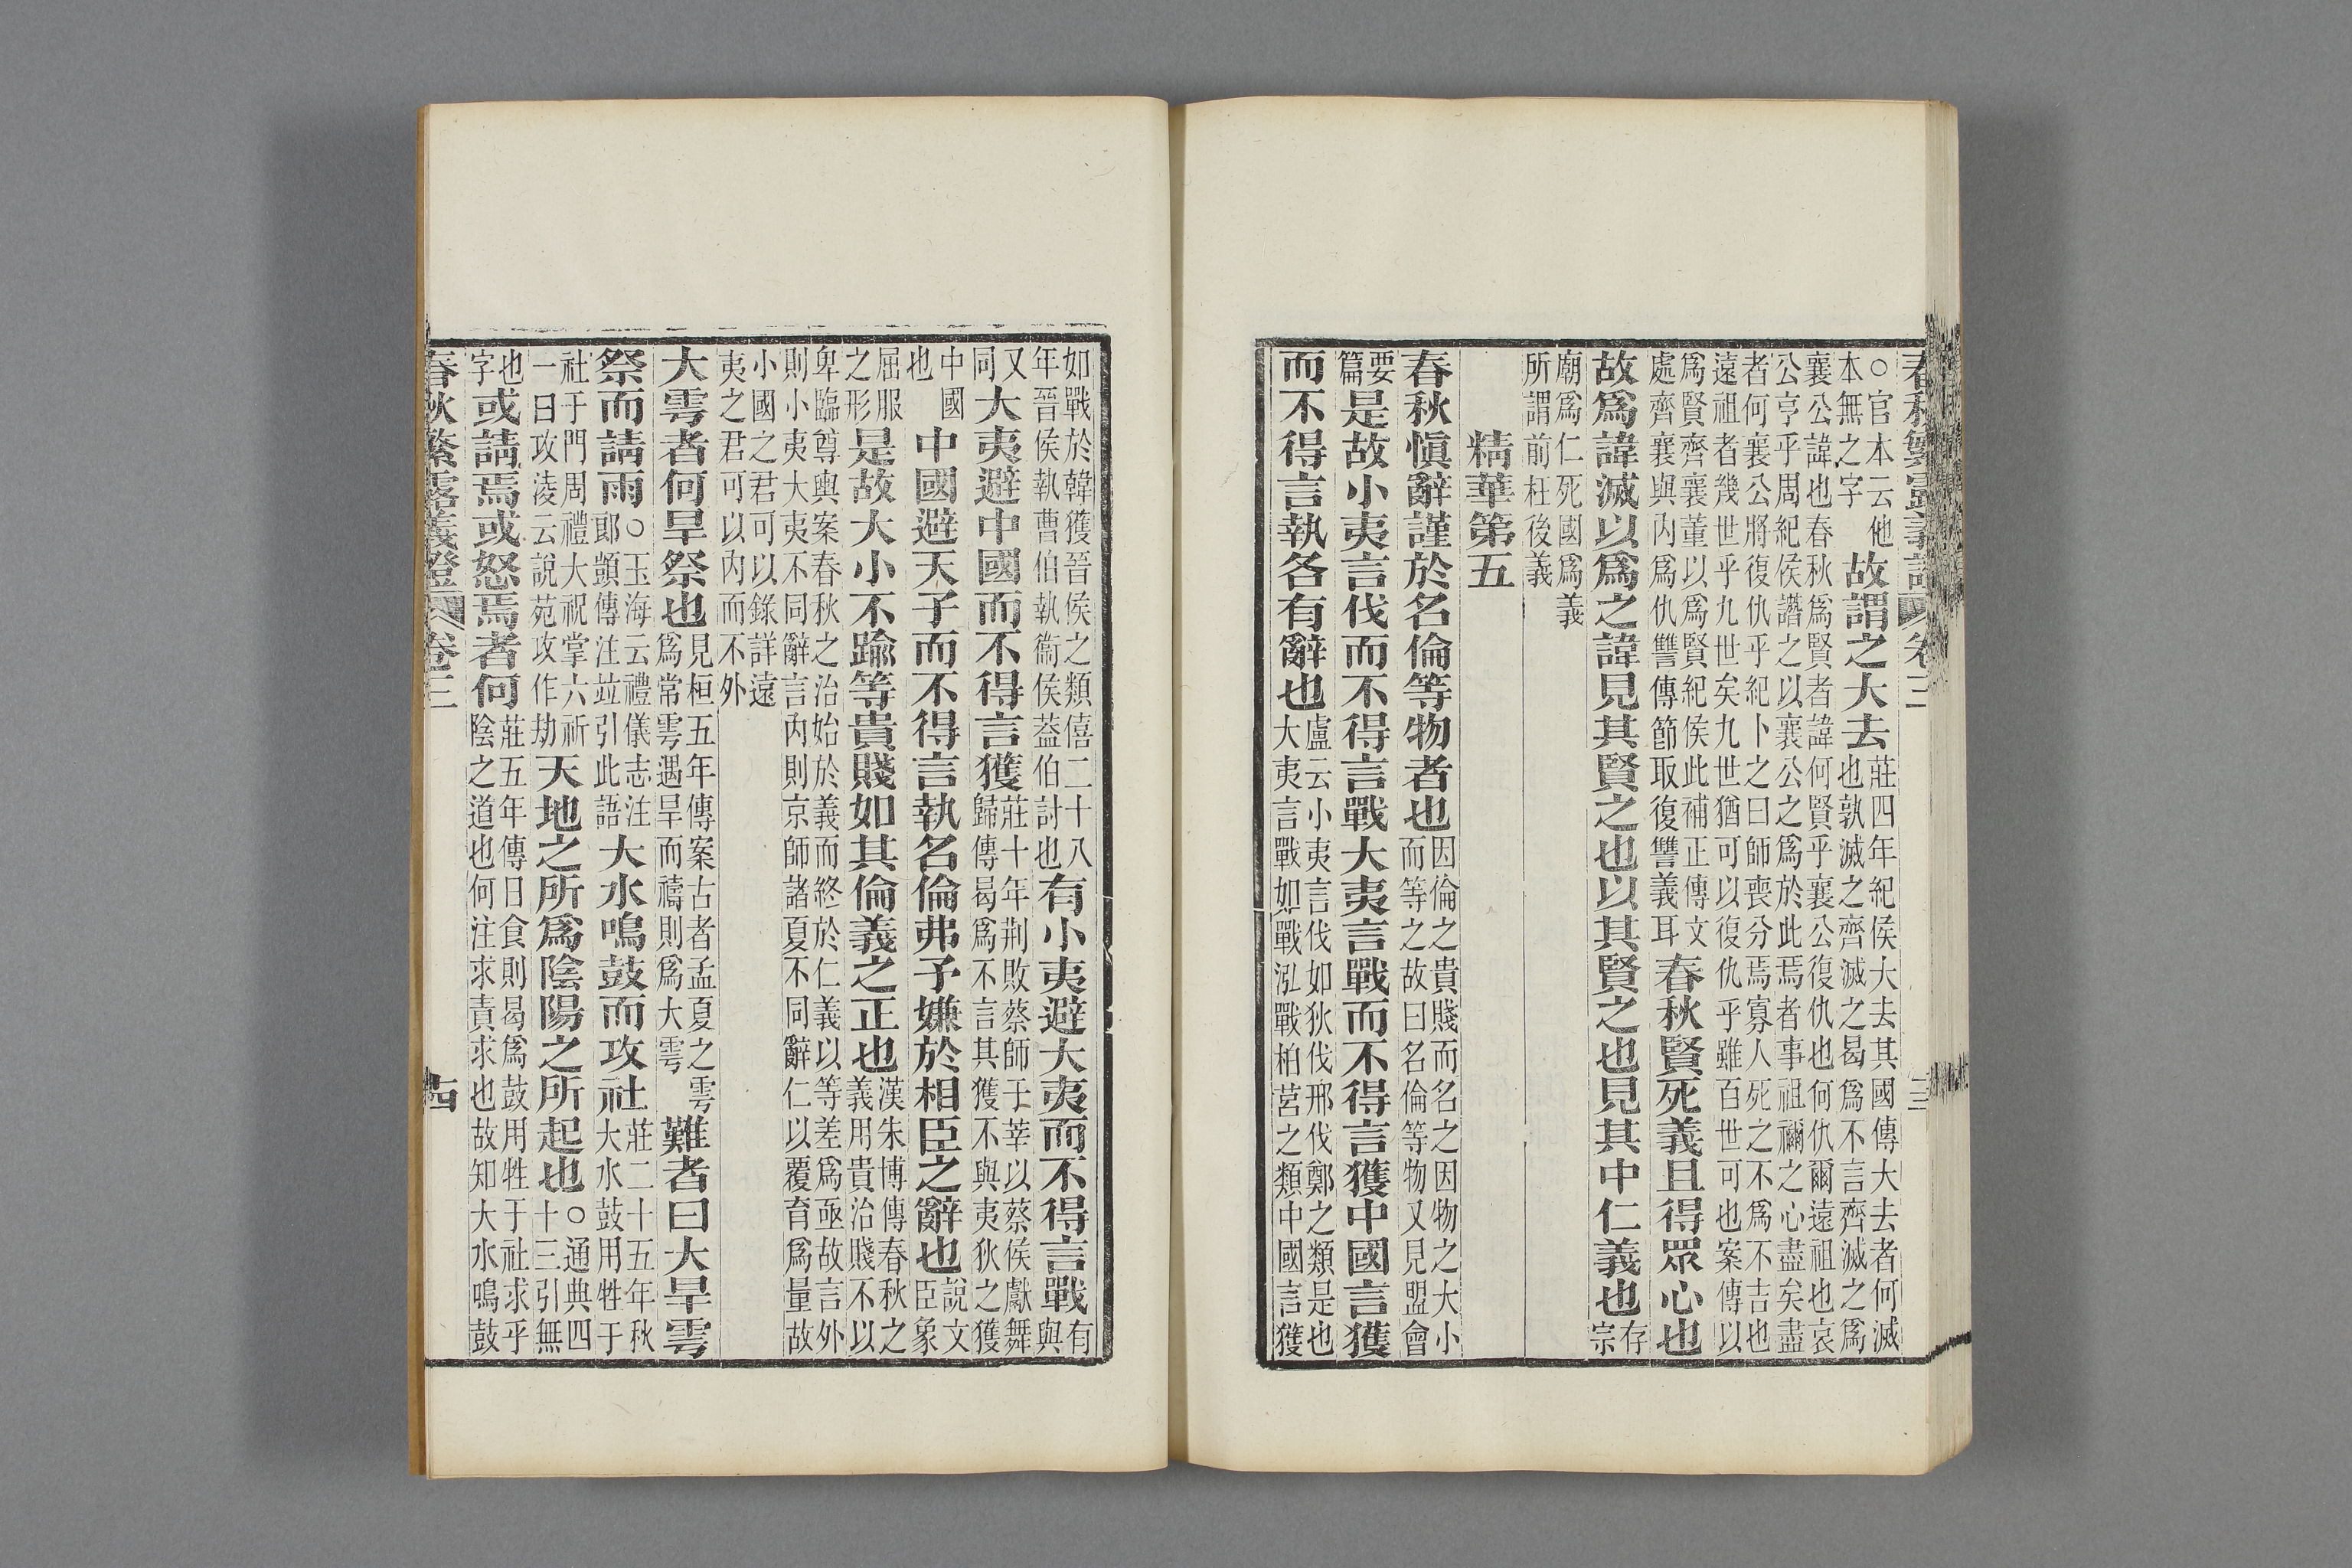 春秋繁露義證 卷三 三
○官本云他本無之字故謂之大去莊四年紀侯大去其國傳大去者何滅也孰滅之齊滅之曷爲不言齊滅之爲
襄公諱也春秋爲賢者諱何賢乎襄公復仇也何仇爾遠祖也哀公亨乎周紀侯譖之以襄公之爲於此焉者事祖禰之心盡矣盡
者何襄公將復仇乎紀卜之曰師喪分焉寡人死之不爲不吉也遠祖者幾世乎九世矣九世猶可以復仇乎雖百世可也案傳以
爲賢齊襄董以爲賢紀侯此補正傳文處齊襄與内爲仇讐傳節取復讐義耳春秋賢死義且得眾心也
故爲諱滅以爲之諱見其賢之也以其賢之也見其中仁義也存宗
廟爲仁死國爲義所謂前枉後義
精華第五
春秋愼辭謹於名倫等物者也因倫之貴賤而名之因物之大小而等之故曰名倫等物又見盟會
要篇是故小夷言伐而不得言戰大夷言戰而不得言獲中國言獲
而不得言執各有辭也盧云小夷言伐如狄伐邢伐鄭之類是也大夷言戰如戰泓戰柏莒之類中國言獲
如戰於韓獲晉侯之類僖二十八年晉侯執曹伯執衞侯蓋伯討也有小夷避大夷而不得言戰有與
又同大夷避中國而不得言獲莊十年荆敗蔡師于莘以蔡侯獻舞歸傳曷爲不言其獲不與夷狄之獲
中國也中國避天子而不得言執名倫弗予嫌於相臣之辭也說文臣象
屈服之形是故大小不踰等貴賤如其倫義之正也漢朱博傳春秋之義用貴治賤不以
卑臨尊輿案春秋之治始於義而終於仁義以等差爲亟故言外則小夷大夷不同辭言内則京師諸夏不同辭仁以覆育爲量故
小國之君可以錄詳遠夷之君可以内而不外
大雩者何旱祭也見桓五年傳案古者孟夏之雩爲常雩遇旱而禱則爲大雩難者曰大旱雩
祭而請雨○玉海云禮儀志注郎顗傳注竝引此語大水鳴鼓而攻社莊二十五年秋大水鼓用牲于
社于門周禮大祝掌六祈一曰攻淩云說苑攻作劫天地之所爲陰陽之所起也○通典四十三引無
也字或請焉或怒焉者何莊五年傳日食則曷爲鼓用牲于社求乎陰之道也何注求責求也故知大水鳴鼓
春秋繁露義證 卷三 四